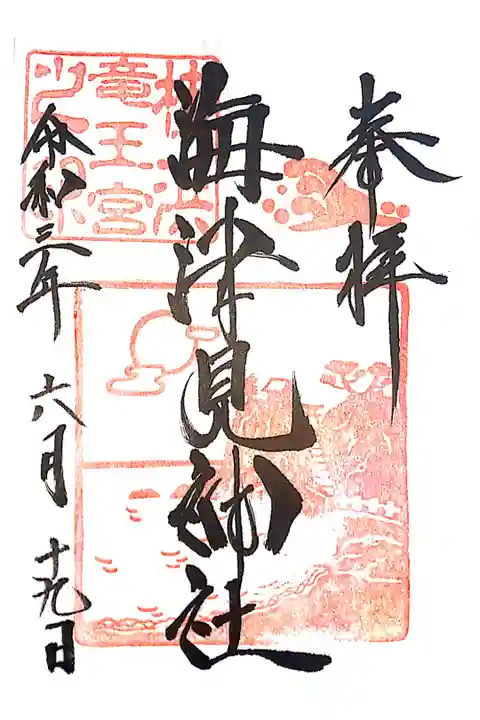 奉拝
海津見神社
竜王宮
令和三年 六月 十九日